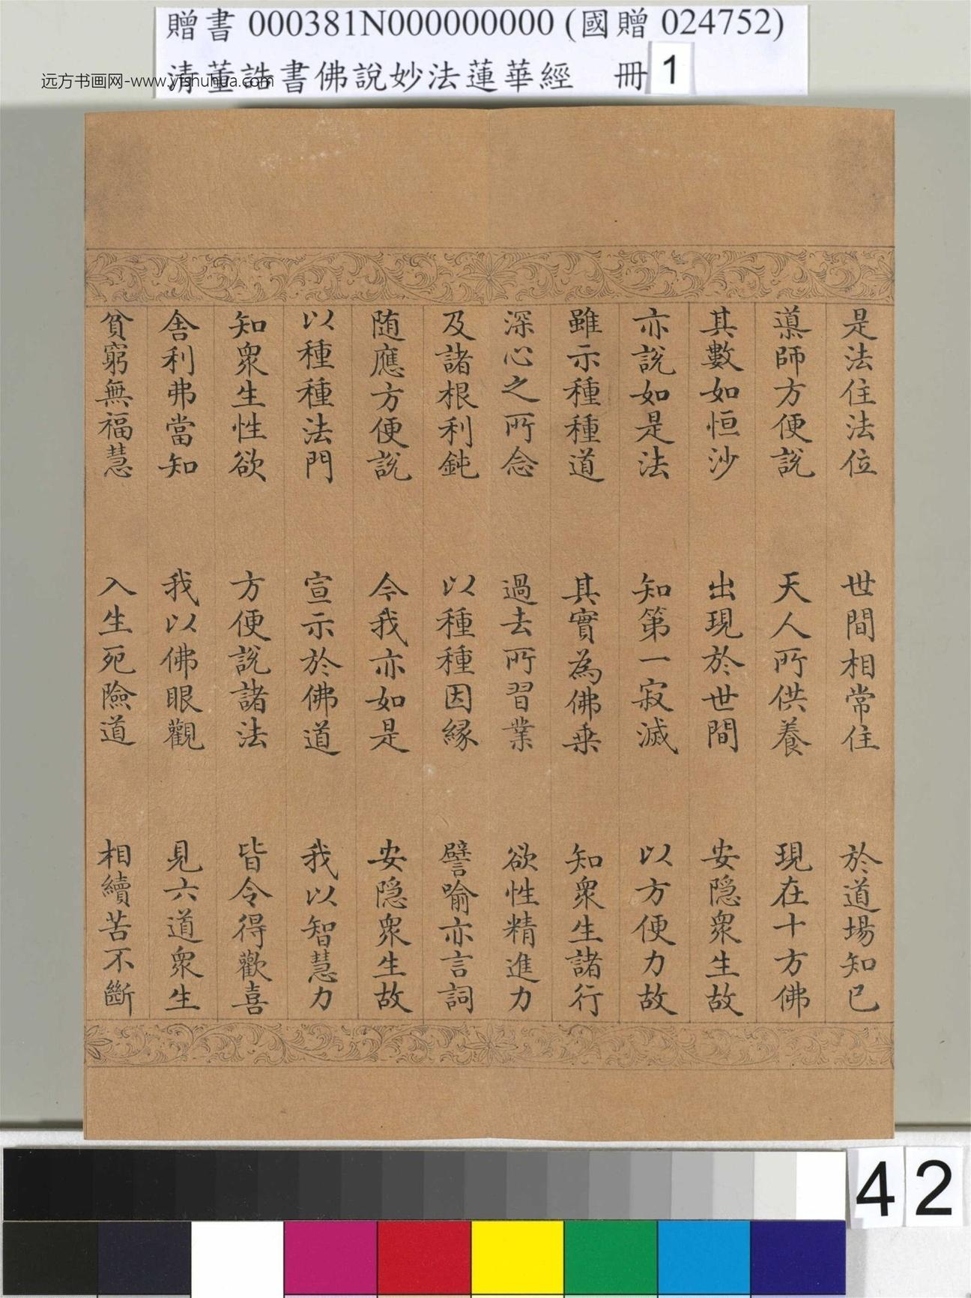 贈書 000381N000000000 (國贈 024752)
清董誥書佛說妙法蓮華經 冊 1
远方书画网-www.yfshuhua.com
是法住法位 世間相常住 於道場知已
導師方便說 天人所供養 現在十方佛
其數如恒沙 出現於世間 安隐衆生故
亦說如是法 知第一寂滅 以方便力故
雖示種種道 其實為佛乗 知衆生諸行
深心之所念 過去所習業 欲性精進力
及諸根利鈍 以種種因緣 譬喻亦言詞
随應方便說 令我亦如是 安隐衆生故
以種種法門 宣示於佛道 我以智慧力
知衆生性欲 方便說諸法 皆令得歡喜
舍利弗當知 我以佛眼觀 見六道衆生
貧窮無福慧 入生死險道 相續苦不斷
42